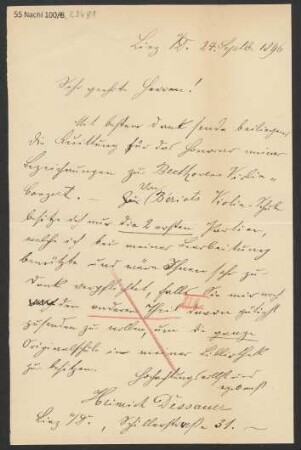 55 Nachl 100/B,
Linz a/D. 24. Septb. 1896
Sehr geehrte Herren!
Mit bestem Dank sende beiliegend
die Quittung für das Honorar meiner
Bezeichnungen zu Beethoven Violin-
Konzert. — Von Bériots Violin-Schule
besitze ich nur die 2 ersten Partien,
welche ich bei meiner Bearbeitung
benützte und wäre Ihnen sehr zu
Dank verpflichtet, falls Sie mir noch
den anderen Theil davon gütigst
zusenden zu wollen, um die ganze
Originalschule in meiner Bibliothek
zu besitzen.
Hochachtungsvollst und
ergebenst
Heinrich Dessauer
Linz a/D., Schillerstrasse 31. —